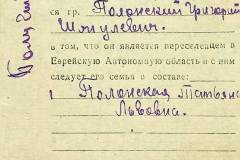 ся гр. Полонский Григорий
Шмулевич.
в том, что он является переселенцем в
Еврейскую Автономную область и с ним
следует его семья в составе:
1 Полонская Татьяна
Львовна.